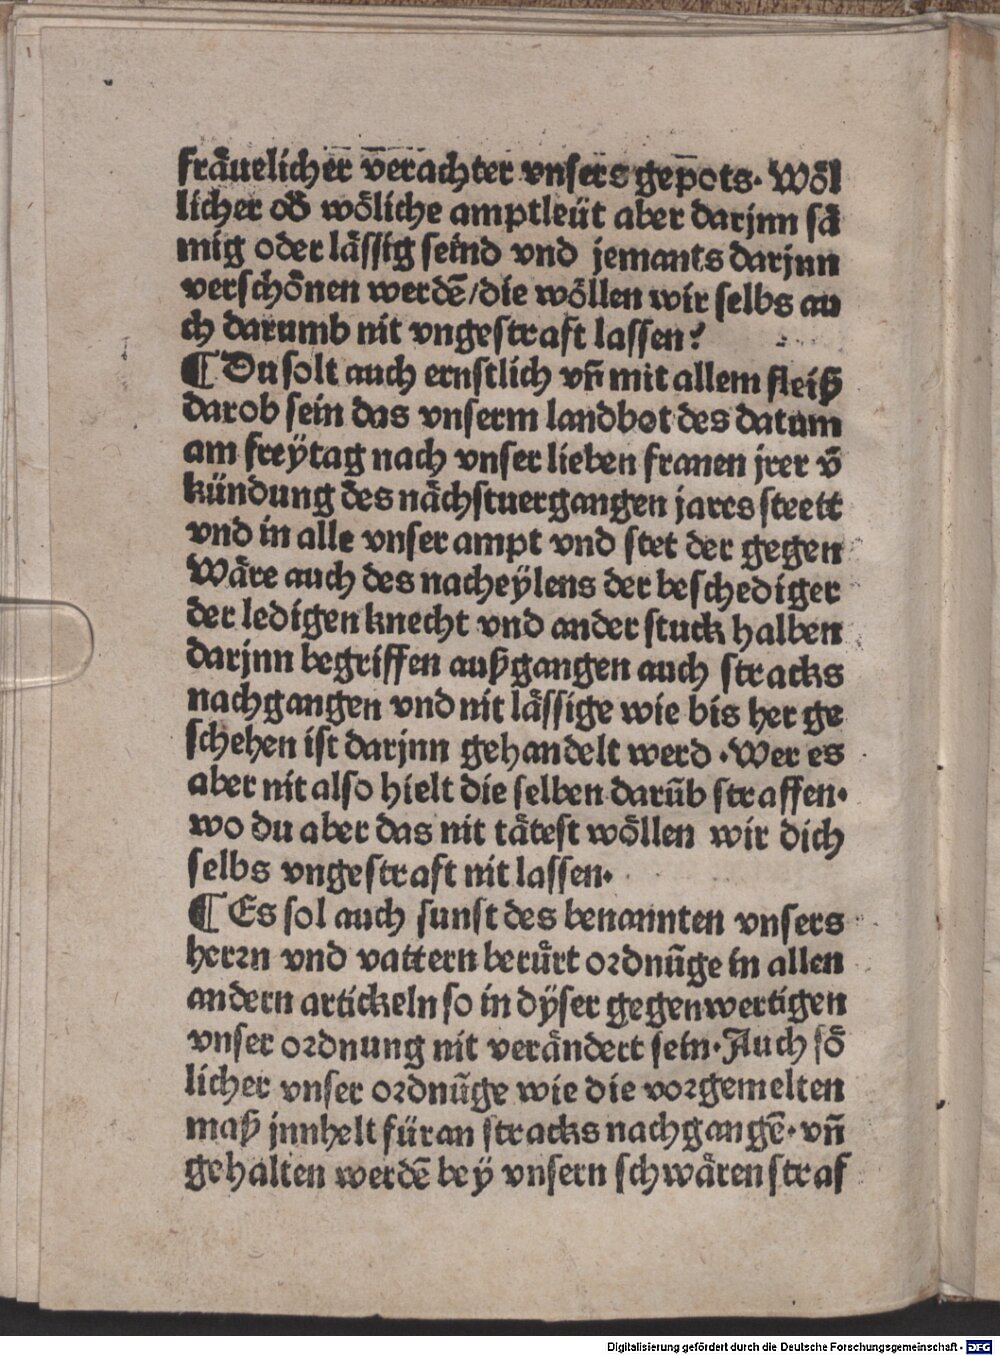 fräuelicher verachter vnsers gepots. Wöl
licher oď wöliche amptleüt aber darjnn sä
mig oder lässig seind vnd jemants darjnn
verschönen werdē/die wöllen wir selbs au
ch darumb nit vngestraft lassen?
¶ Du solt auch ernstlich vn̄ mit allem fleiß
darob sein das vnserm landbot des datum
am freÿtag nach vnser lieben frauen jrer v̄
kündung des nächstuergangen jares steett
vnd in alle vnser ampt vnd stet der gegen
Wäre auch des nacheÿlens der beschediger
der ledigen knecht vnd ander stuck halben
darjnn begriffen außgangen auch stracks
nachgangen vnd nit lässige wie bis her ge
schehen ist darjnn gehandelt werd . Wer es
aber nit also hielt die selben darūb straffen.
wo du aber das nit tätest wöllen wir dich
selbs vngestraft nit lassen.
¶ Es sol auch sunst des benannten vnsers
herrn vnd vattern berůrt ordnūge in allen
andern artickeln so in dÿser gegenwertigen
vnser ordnung nit verändert sein. Auch sö
licher vnser ordnūge wie die vorgemelten
maß jnnhelt füran stracks nachgangē. vn̄
gehalten werdē beÿ vnsern schwären straf
Digitalisierung gefördert durch die Deutsche Forschungsgemeinschaft - DFG